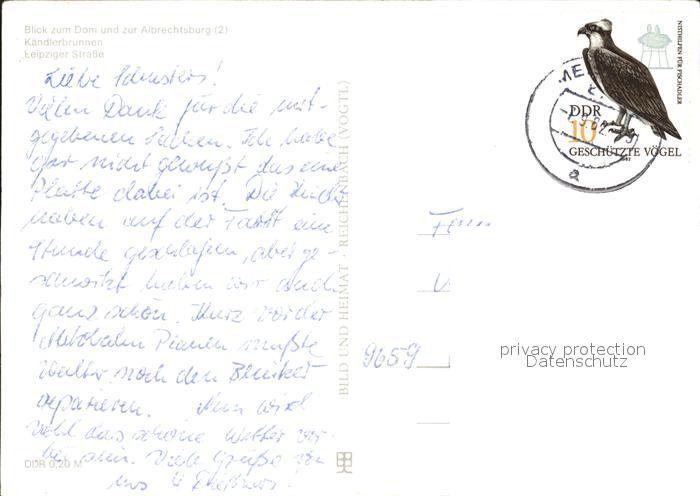 Blick zum Dom und zur Albrechtsburg (2)
Kändlerbrunnen
Leipziger Straße
Liebe
Vielen Dank für die mit-
gegebenen Sachen. Ich habe
gar nicht gewußt das eine
Platte dabei ist. Die Kinder
haben auf der Fahrt eine
Stunde geschlafen, aber ge-
schwitzt haben wir auch
ganz schön. Kurz vor der
mußte
Walter noch den Blinker
reparieren. Nun wird
wohl das schöne Wetter vor-
bei sein. Viele Grüße von
uns 4
DDR 0,20 M
BILD UND HEIMAT · REICHENBACH (VOGTL)
NISTHILFEN FÜR FISCHADLER
DDR
10
GESCHÜTZTE VÖGEL
1982
ME
a
9659
privacy protection
Datenschutz